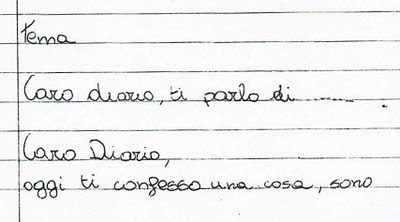 tema
Caro diario, ti parlo di .......
Caro Diario,
oggi ti confesso una cosa, sono